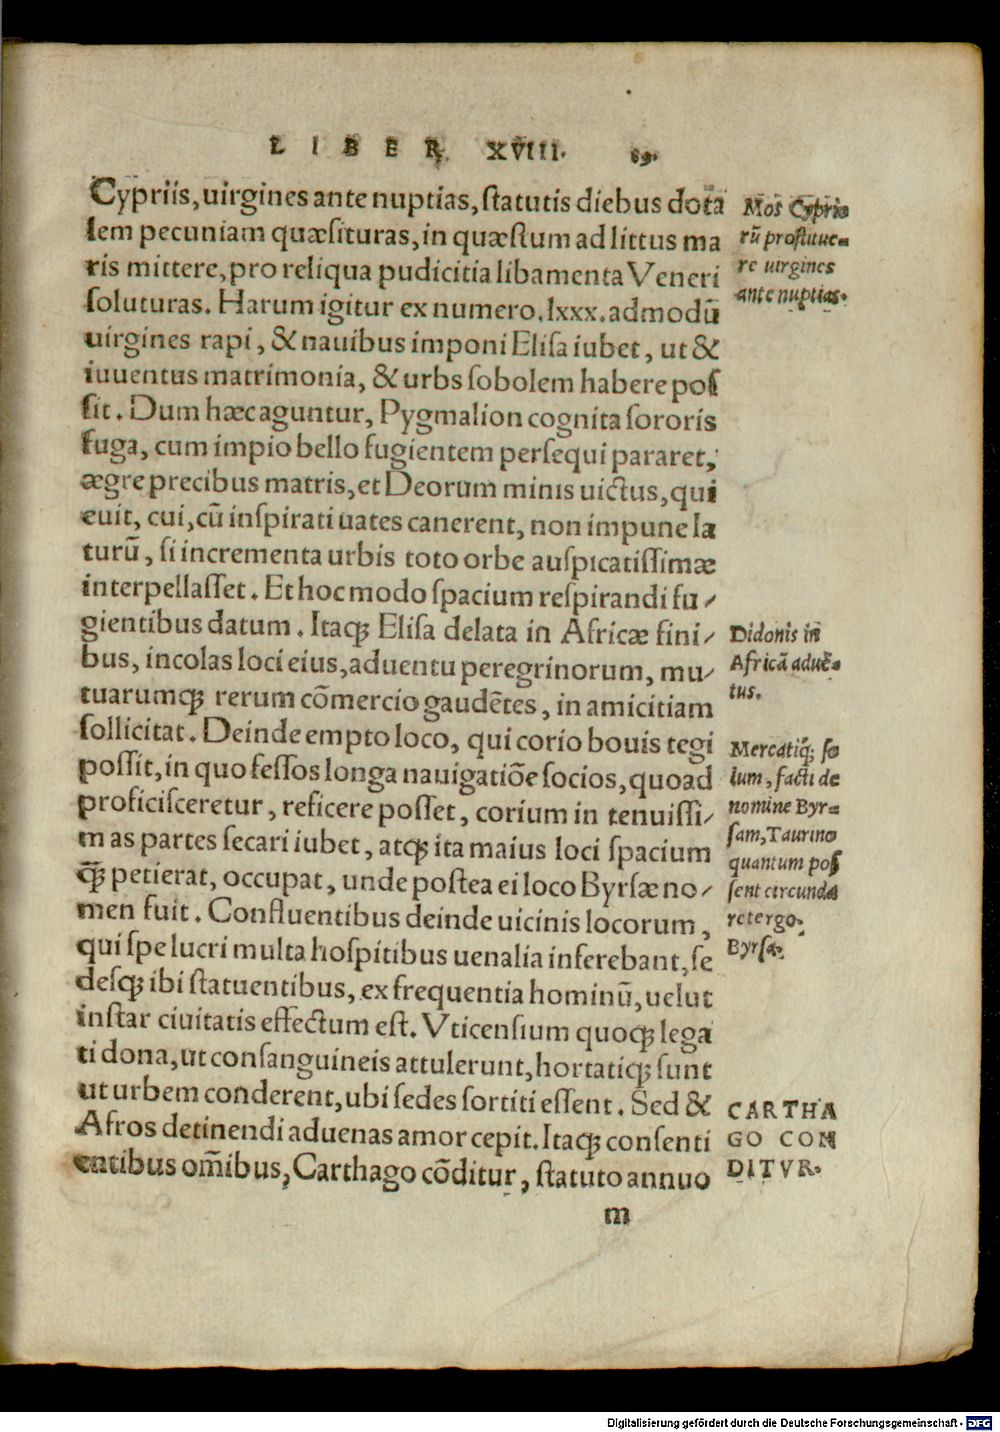 LIBER XVIII. 89.
Cypriis, uirgines ante nuptias, ſtatutis diebus dota
lem pecuniam quæſituras, in quæſtum ad littus ma
ris mittere, pro reliqua pudicitia libamenta Veneri
ſoluturas. Harum igitur ex numero. lxxx. admodũ
uirgines rapi, & nauibus imponi Eliſa iubet, ut &
iuuentus matrimonia, & urbs ſobolem habere poſ
ſit. Dum hæc aguntur, Pygmalion cognita ſororis
fuga, cum impio bello fugientem perſequi pararet,
ægre precibus matris, et Deorum minis uictus, qui
euit, cui, cũ inſpirati uates canerent, non impune la
turũ, ſi incrementa urbis toto orbe auſpicatiſſimæ
interpellaſſet. Et hoc modo ſpacium reſpirandi fu⸗
gientibus datum. Itaqꝫ Eliſa delata in Africæ fini⸗
bus, incolas loci eius, aduentu peregrinorum, mu⸗
tuarumqꝫ rerum cõmercio gaudẽtes, in amicitiam
ſollicitat. Deinde empto loco, qui corio bouis tegi
poſſit, in quo feſſos longa nauigatiõe ſocios, quoad
proficiſceretur, reficere poſſet, corium in tenuiſſi⸗
mas partes ſecari iubet, atqꝫ ita maius loci ſpacium
q̃ꝫ petierat, occupat, unde poſtea ei loco Byrſæ no⸗
men fuit. Confluentibus deinde uicinis locorum,
qui ſpe lucri multa hoſpitibus uenalia inferebant, ſe
deſqꝫ ibi ſtatuentibus, ex frequentia hominũ, uelut
inſtar ciuitatis effectum eſt. Vticenſium quoqꝫ lega
ti dona, ut conſanguineis attulerunt, hortatiqꝫ ſunt
ut urbem conderent, ubi ſedes ſortiti eſſent. Sed &
Afros detinendi aduenas amor cepit. Itaqꝫ conſenti
entibus om̃ibus, Carthago cõditur, ſtatuto annuo
m
Mos Cyprio
rũ proſtitue⸗
re uirgines
ante nuptias.
Didonis in
Africã aduẽ⸗
tus.
Mercatiqꝫ ſo
lum, facti de
nomine Byr⸗
ſam, Taurino
quantum poſ
ſent circunda
re tergo.
Byrſa.
CARTHA
GO CON
DITVR.
Digitalisierung gefördert durch die Deutsche Forschungsgemeinschaft - DFG